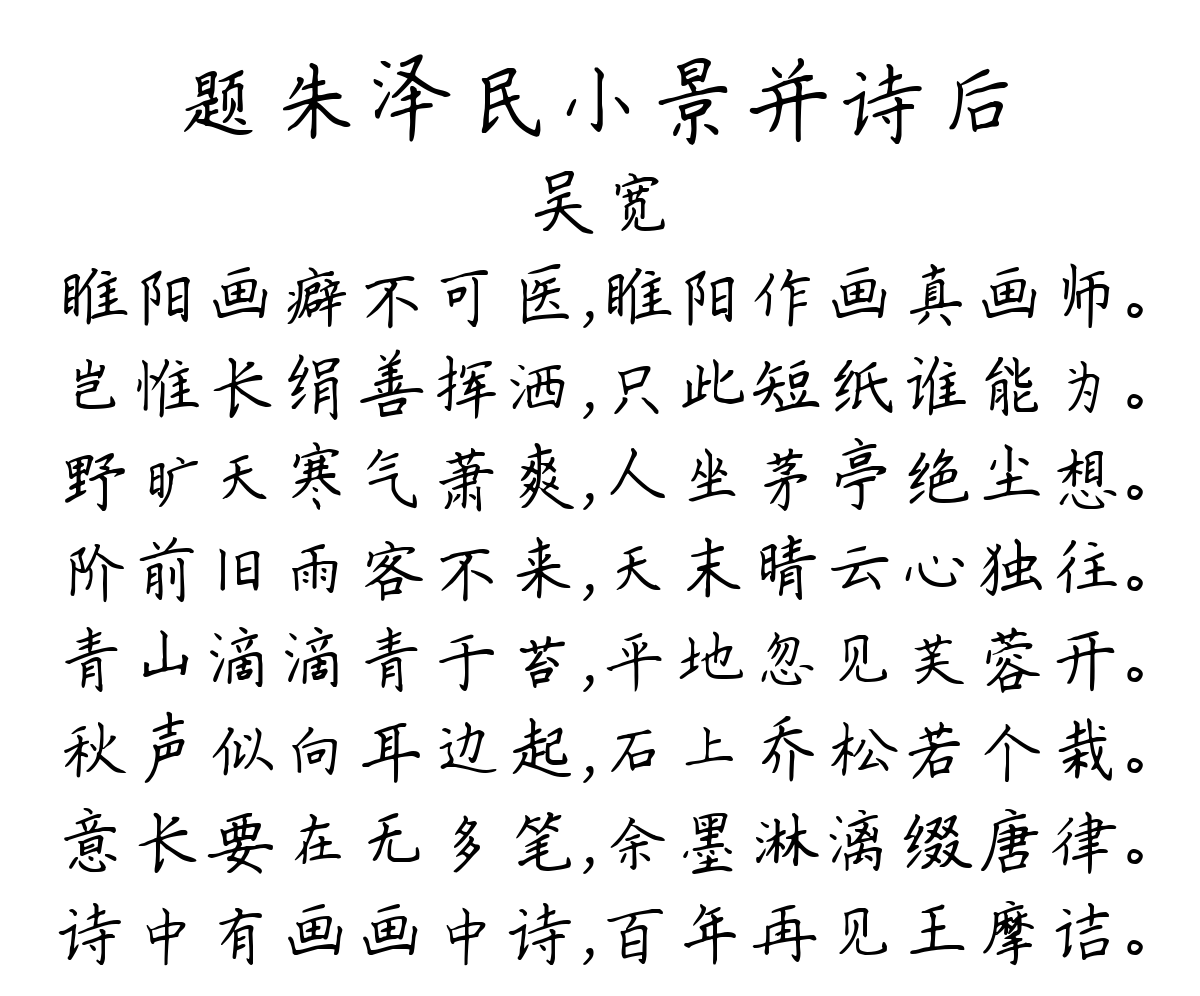 题朱泽民小景并诗后
吴宽
睢阳画癖不可医,睢阳作画真画师。
岂惟长绢善挥洒,只此短纸谁能为。
野旷天寒气萧爽,人坐茅亭绝尘想。
阶前旧雨客不来,天末晴云心独往。
青山滴滴青于苔,平地忽见芙蓉开。
秋声似向耳边起,石上乔松若个栽。
意长要在无多笔,余墨淋漓缀唐律。
诗中有画画中诗,百年再见王摩诘。